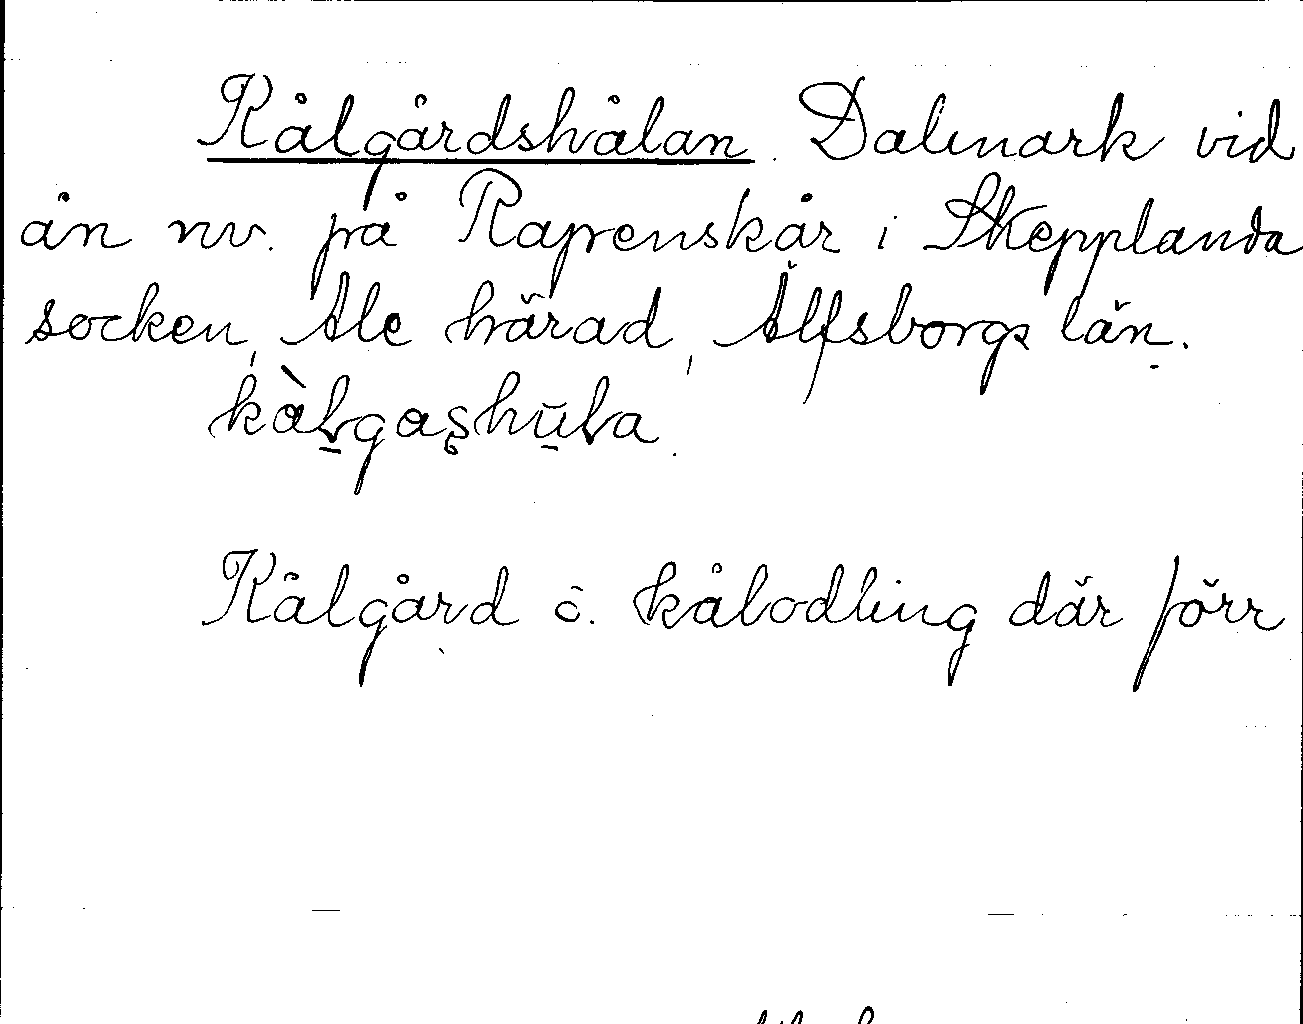 Kålgårdshålan. Dalmark vid
ån nv. på Rapenskår i Skepplanda
socken, Ale härad, Älfsborgs län.
kàlgaʂhula
Kålgård o. kålodling där förr